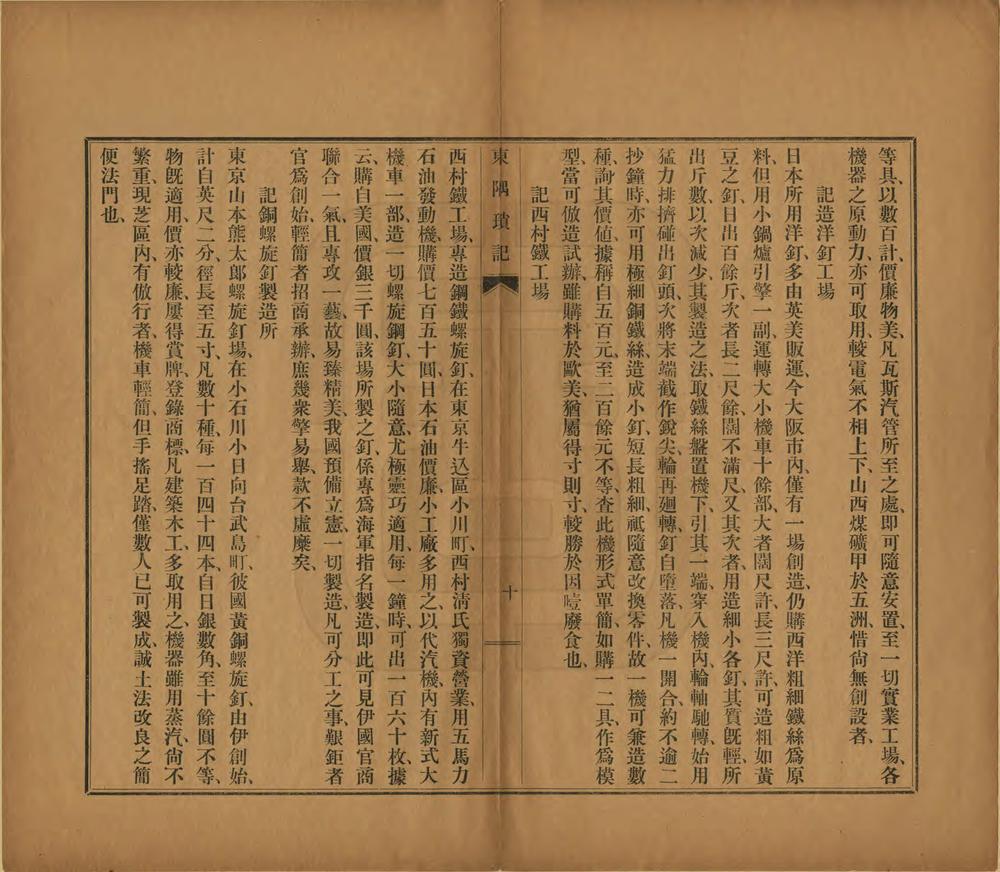 等具、以數百計、價廉物美、凡瓦斯汽管所至之處、即可隨意安置、至一切實業工場、各
機器之原動力、亦可取用、較電氣不相上下、山西煤礦甲於五洲、惜尙無創設者、
記造洋釘工場
日本所用洋釘、多由英美販運、今大阪市內、僅有一場創造、仍購西洋粗細鐵絲爲原
料、但用小鍋爐引擎一副、運轉大小機車十餘部、大者闊尺許、長三尺許、可造粗如黃
豆之釘、日出百餘斤、次者長二尺餘、闊不滿尺、又其次者、用造細小各釘、其質旣輕、所
出斤數、以次減少、其製造之法、取鐵絲盤置機下、引其一端、穿入機內、輪軸馳轉、始用
猛力排擠碰出釘頭、次將末端截作銳尖、輪再廻轉、釘自墮落、凡機一開合、約不逾二
抄鐘時、亦可用極細銅鐵絲、造成小釘、短長粗細、祗隨意改換零件、故一機可兼造數
種、詢其價値、據稱自五百元、至二百餘元不等、查此機形式單簡、如購一二具、作爲模
型、當可倣造試辦、雖購料於歐美、猶屬得寸則寸、較勝於因噎廢食也、
記西村鐵工場
東隅瑣記
十
西村鐵工場、專造鋼鐵螺旋釘、在東京牛込區小川町、西村淸氏獨資營業、用五馬力
石油發動機、購價七百五十圓、日本石油價廉、小工廠多用之、以代汽機、內有新式大
機車一部、造一切螺旋鋼釘、大小隨意、尤極靈巧適用、每一鐘時、可出一百六十枚、據
云、購自美國、價銀三千圓、該場所製之釘、係專爲海軍指名製造、即此可見伊國官商
聯合一氣、且專攻一藝、故易臻精美、我國預備立憲、一切製造、凡可分工之事、艱鉅者
官爲創始、輕簡者招商承辦、庶幾衆擎易舉、款不虛糜矣、
記銅螺旋釘製造所
東京山本熊太郎螺旋釘場、在小石川小日向台武島町、彼國黃銅螺旋釘、由伊創始、
計自英尺二分、徑長至五寸、凡數十種、每一百四十四本、自日銀數角、至十餘圓不等、
物旣適用、價亦較廉、屢得賞牌、登錄商標、凡建築木工、多取用之、機器雖用蒸汽、尙不
繁重、現芝區內有倣行者、機車輕簡、但手搖足踏、僅數人已可製成、誠土法改良之簡
便法門也、